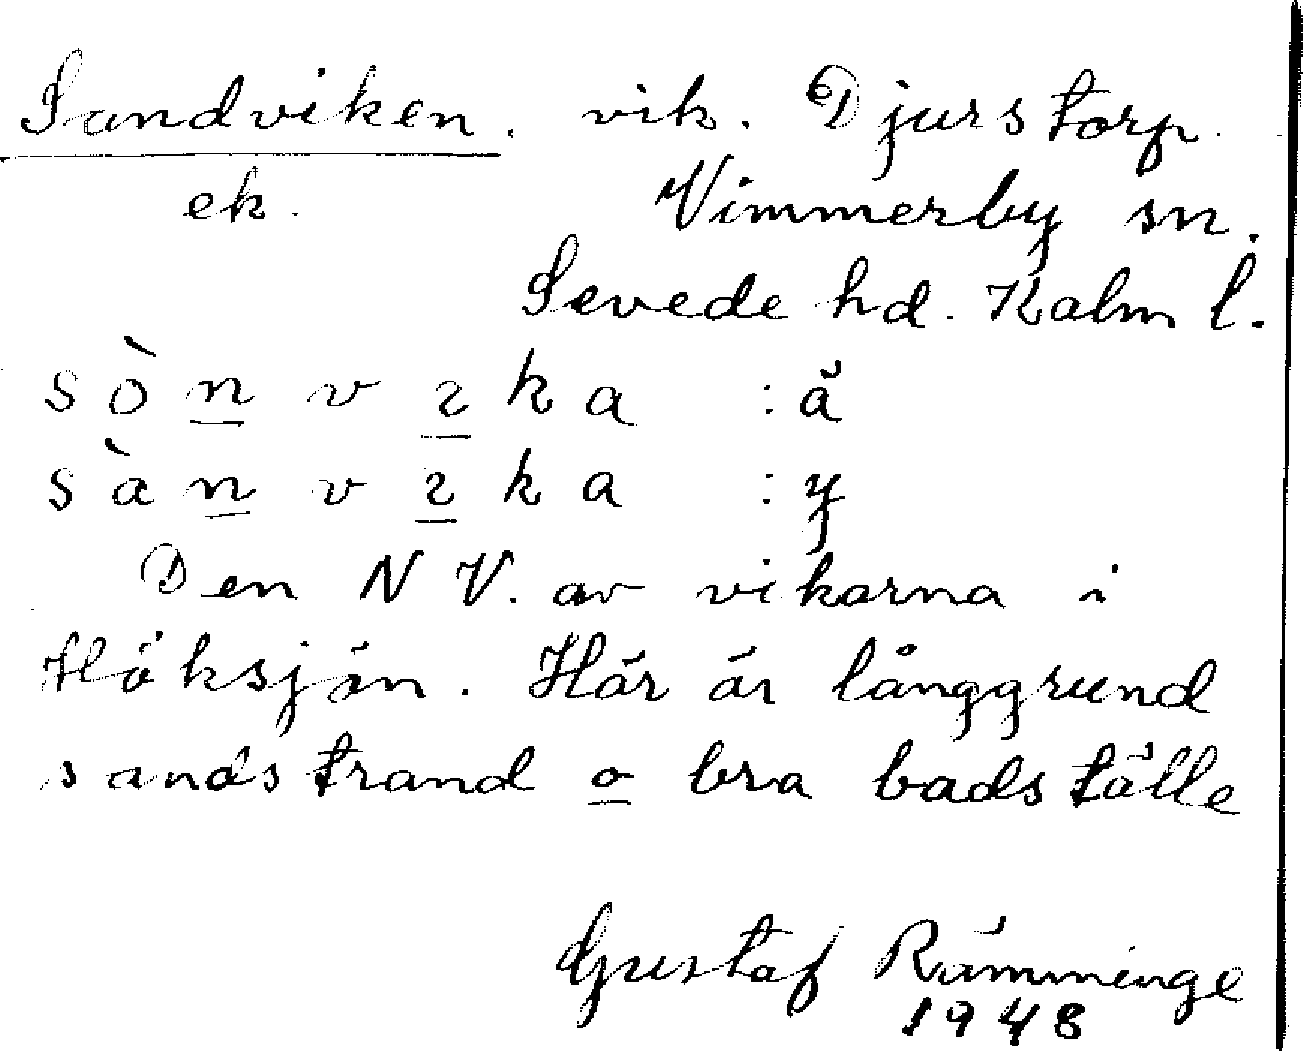 Sandviken. vik. Djurstorp.
ek. Vimmerby sn.
Sevede hd. Kalm l.
sònvɿka : ä
sànvɿka : y
Den N V. av vikarna i
Höksjön. Här är långgrund
sandstrand o bra badställe
Gustaf Rämminge
1948